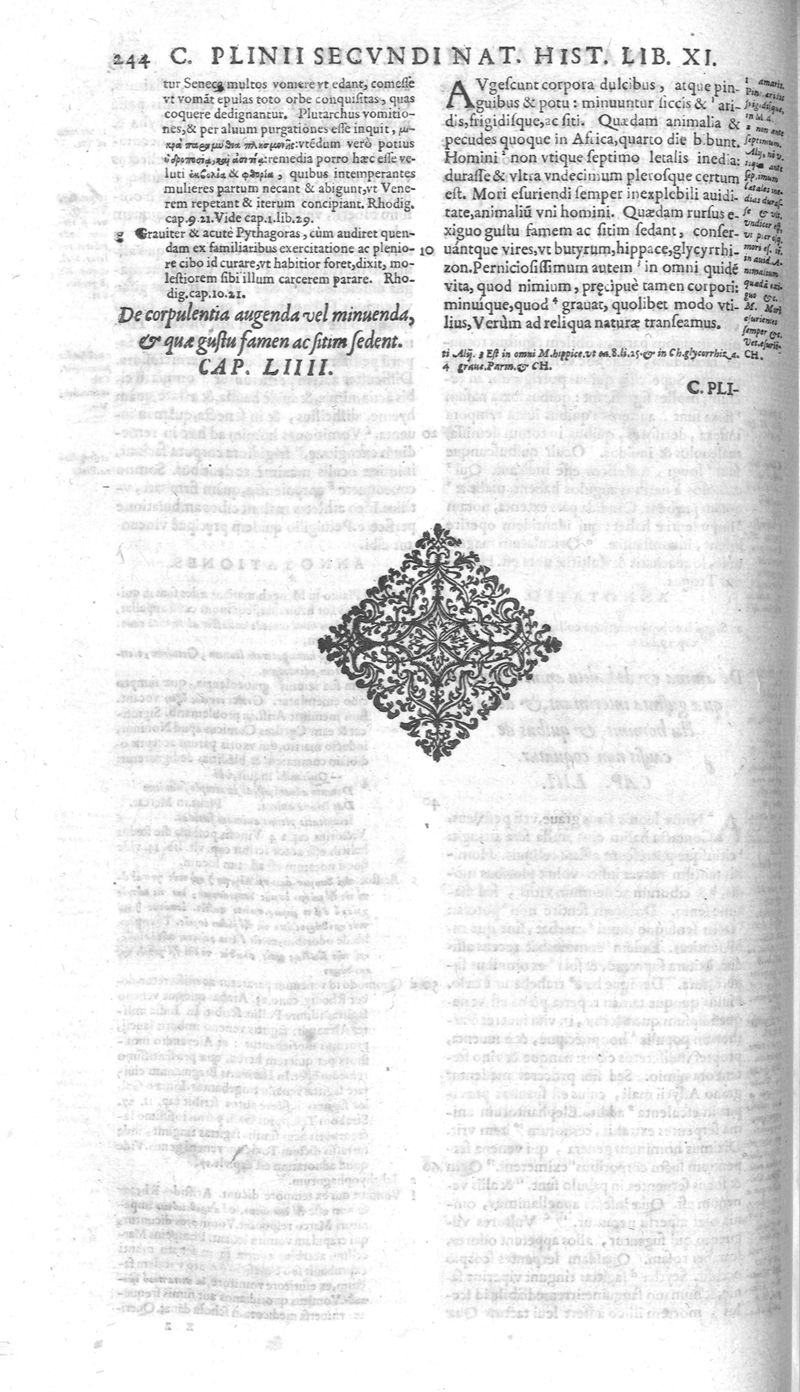 244 C. PLINII SECVNDI NAT. HIST. LIB. XI.
tur Seneca, multos vomere vt edant, comeſſe
vt vomāt epulas toto orbe conquiſitas, quas
coquere dedignantur. Plutarchus vomitio-
nes, & per aluum purgationes eſſe inquit,
vtēdum verò potius
remedia porro hæc eſſe ve-
luti & φθορια, quibus intemperantes
mulieres partum necant & abigunt, vt Vene-
rem repetant & iterum concipiant. Rhodig.
cap.9.21. Vide cap.1.lib.29.
g Grauiter & acutè Pythagoras, cùm audiret quen-
dam ex familiaribus exercitatione ac plenio-
re cibo id curare, vt habitior foret, dixit, mo-
leſtiorem ſibi illum carcerem parare. Rho-
dig.cap.10.21.
De corpulentia augenda vel minuenda,
& quæ guſtu famen ac ſitim ſedent.
CAP. LIIII.
AVgeſcunt corpora dulcibus, atque pin-
guibus & potu: minuuntur ſiccis & ¹ ari-
dis, frigidiſque, ac ſiti. Quædam animalia &
pecudes quoque in Africa, quarto die bibunt.
Homini ² non vtique ſeptimo letalis inedia:
duraſſe & vltra vndecimum pleroſque certum
eſt. Mori eſuriendi ſemper inexplebili auidi-
tate, animaliū vni homini. Quædam rurſus e-
xiguo guſtu famem ac ſitim ſedant, conſer-
10 uántque vires, vt butyrum, hippace, glycyrrhi-
zon. Pernicioſiſſimum autem ³ in omni quidē
vita, quod nimium, pręcipuè tamen corpori:
minuique, quod ⁴ grauat, quolibet modo vti-
lius, Verùm ad reliqua naturæ tranſeamus.
1 amaris.
frigidiſque,
in M. d.
2 non ante
ſeptimum.
Alij, no v-
tique ante
ſeptimum
letales ine-
dias duraſ-
ſe & vlt.
mori eſ. ſi.
in auid. A-
nimalium
quædā exi-
guo &c.
M. Mori
eſurientes
ſemper &c.
Vet. eſurie-
ti Alij. 3 Eſt in omni M. hippice. vt ca.8.li.25. & in Ch. glycorrhiza. CH.
4 graue. Parm. & CH.
C. PLI-